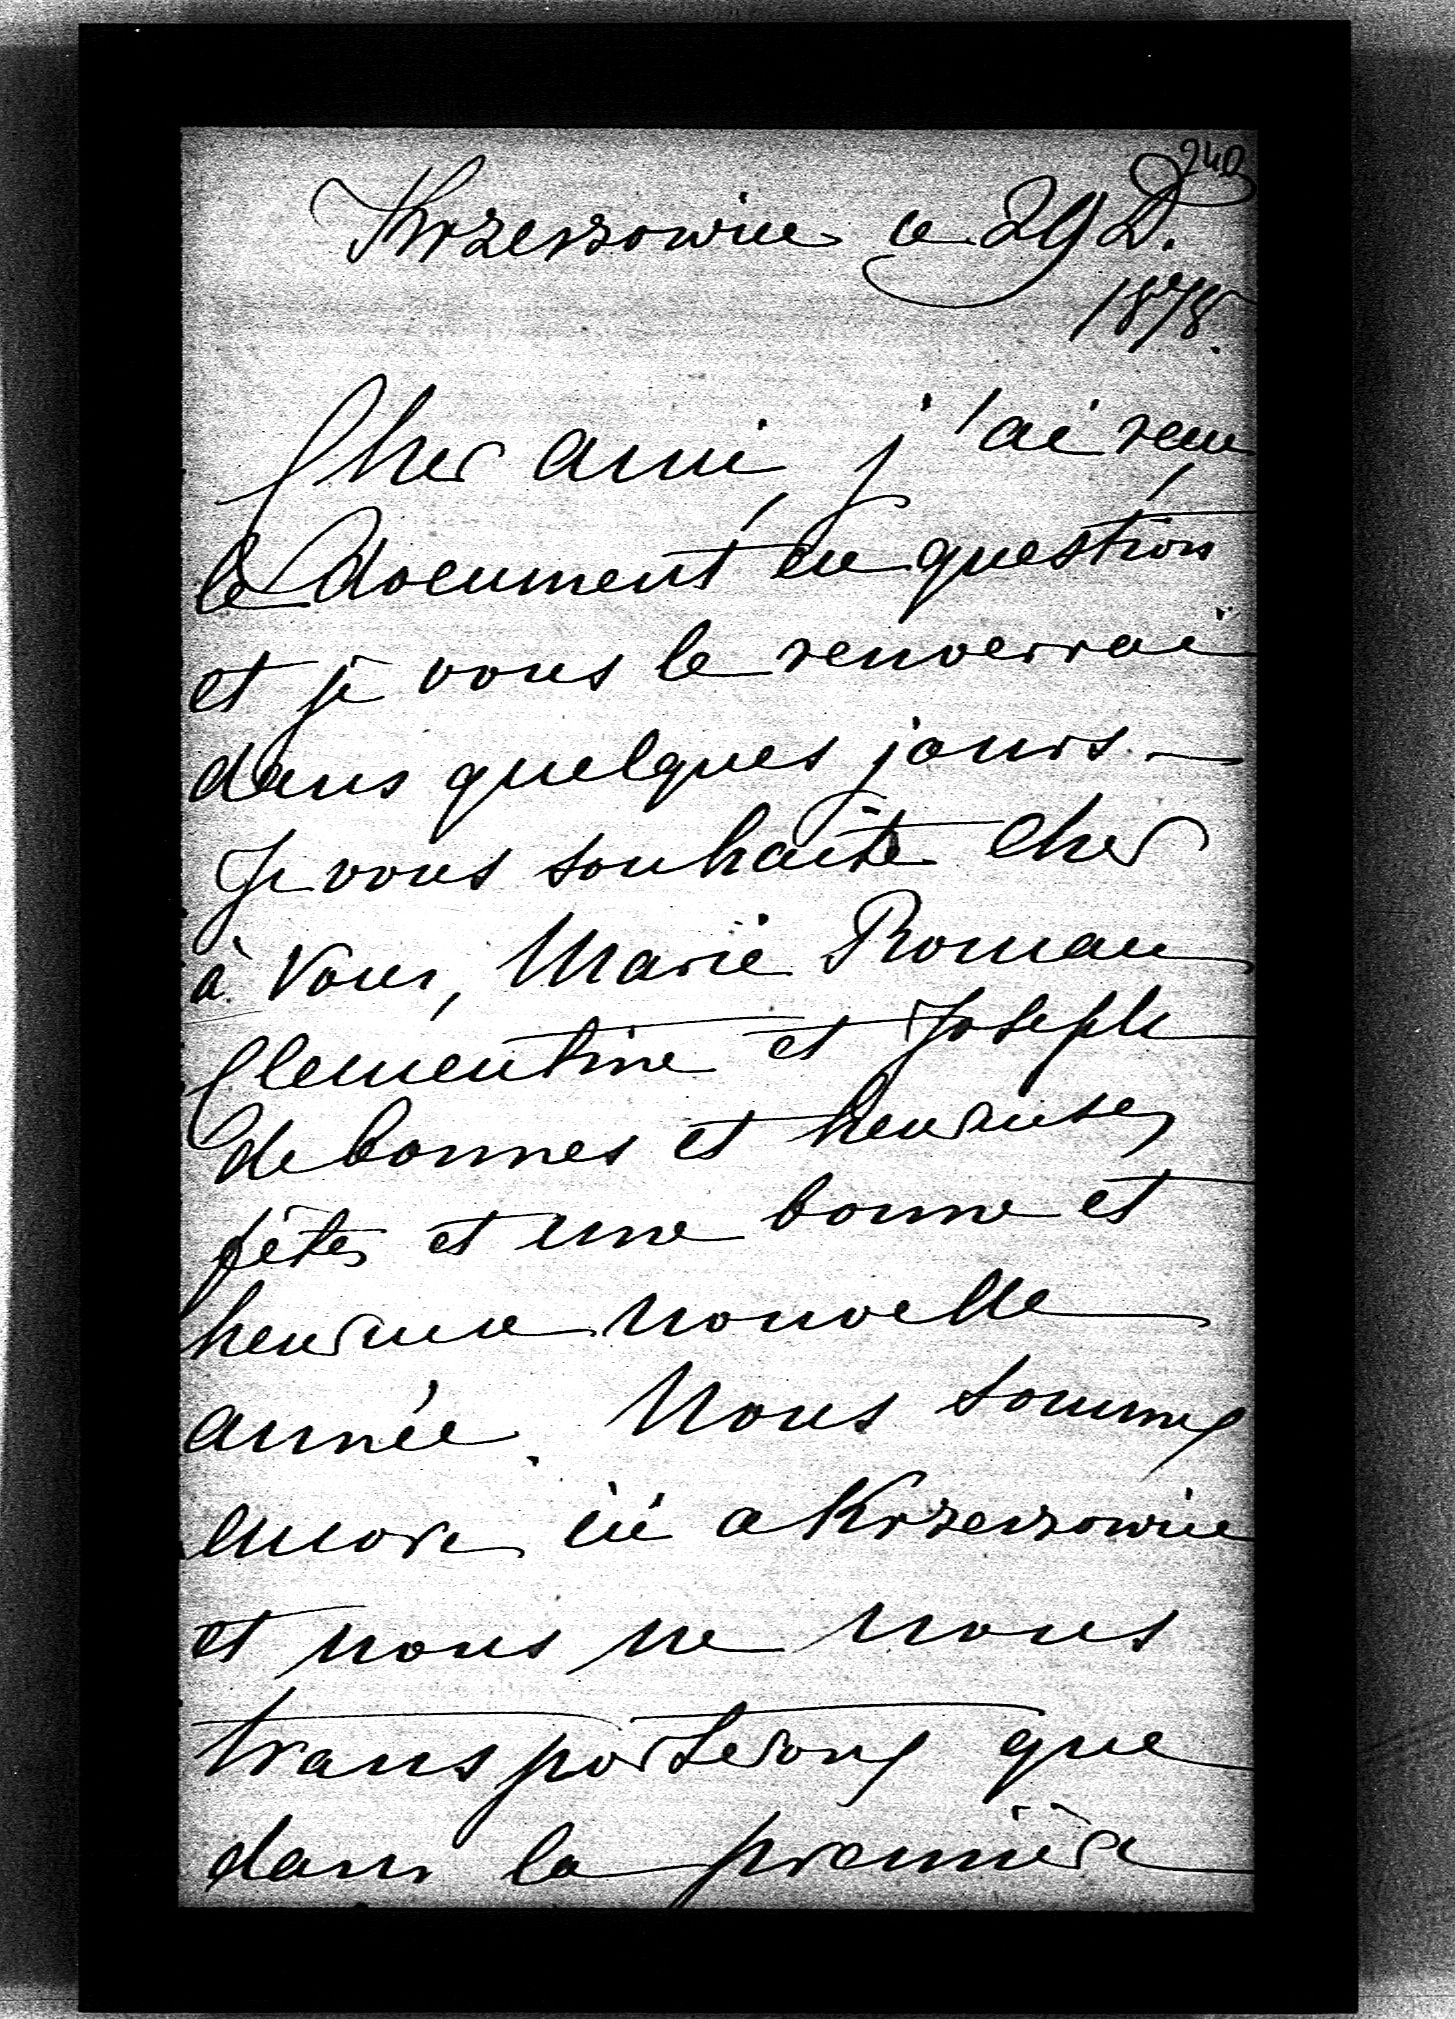 240
Krzeszowice ce 29 D.
1878.
Cher ami, j'ai reçu
le document en question
et je vous le renverrai
dans quelques jours. —
Je vous souhaite cher
à Vous, Marie Roman
Clementine et Joseph
de bonnes et heureuses
fêtes et une bonne et
heureuse nouvelle
année. Nous sommes
encore ici a Krzeszowice
et nous ne nous
transporterons que
dans la première